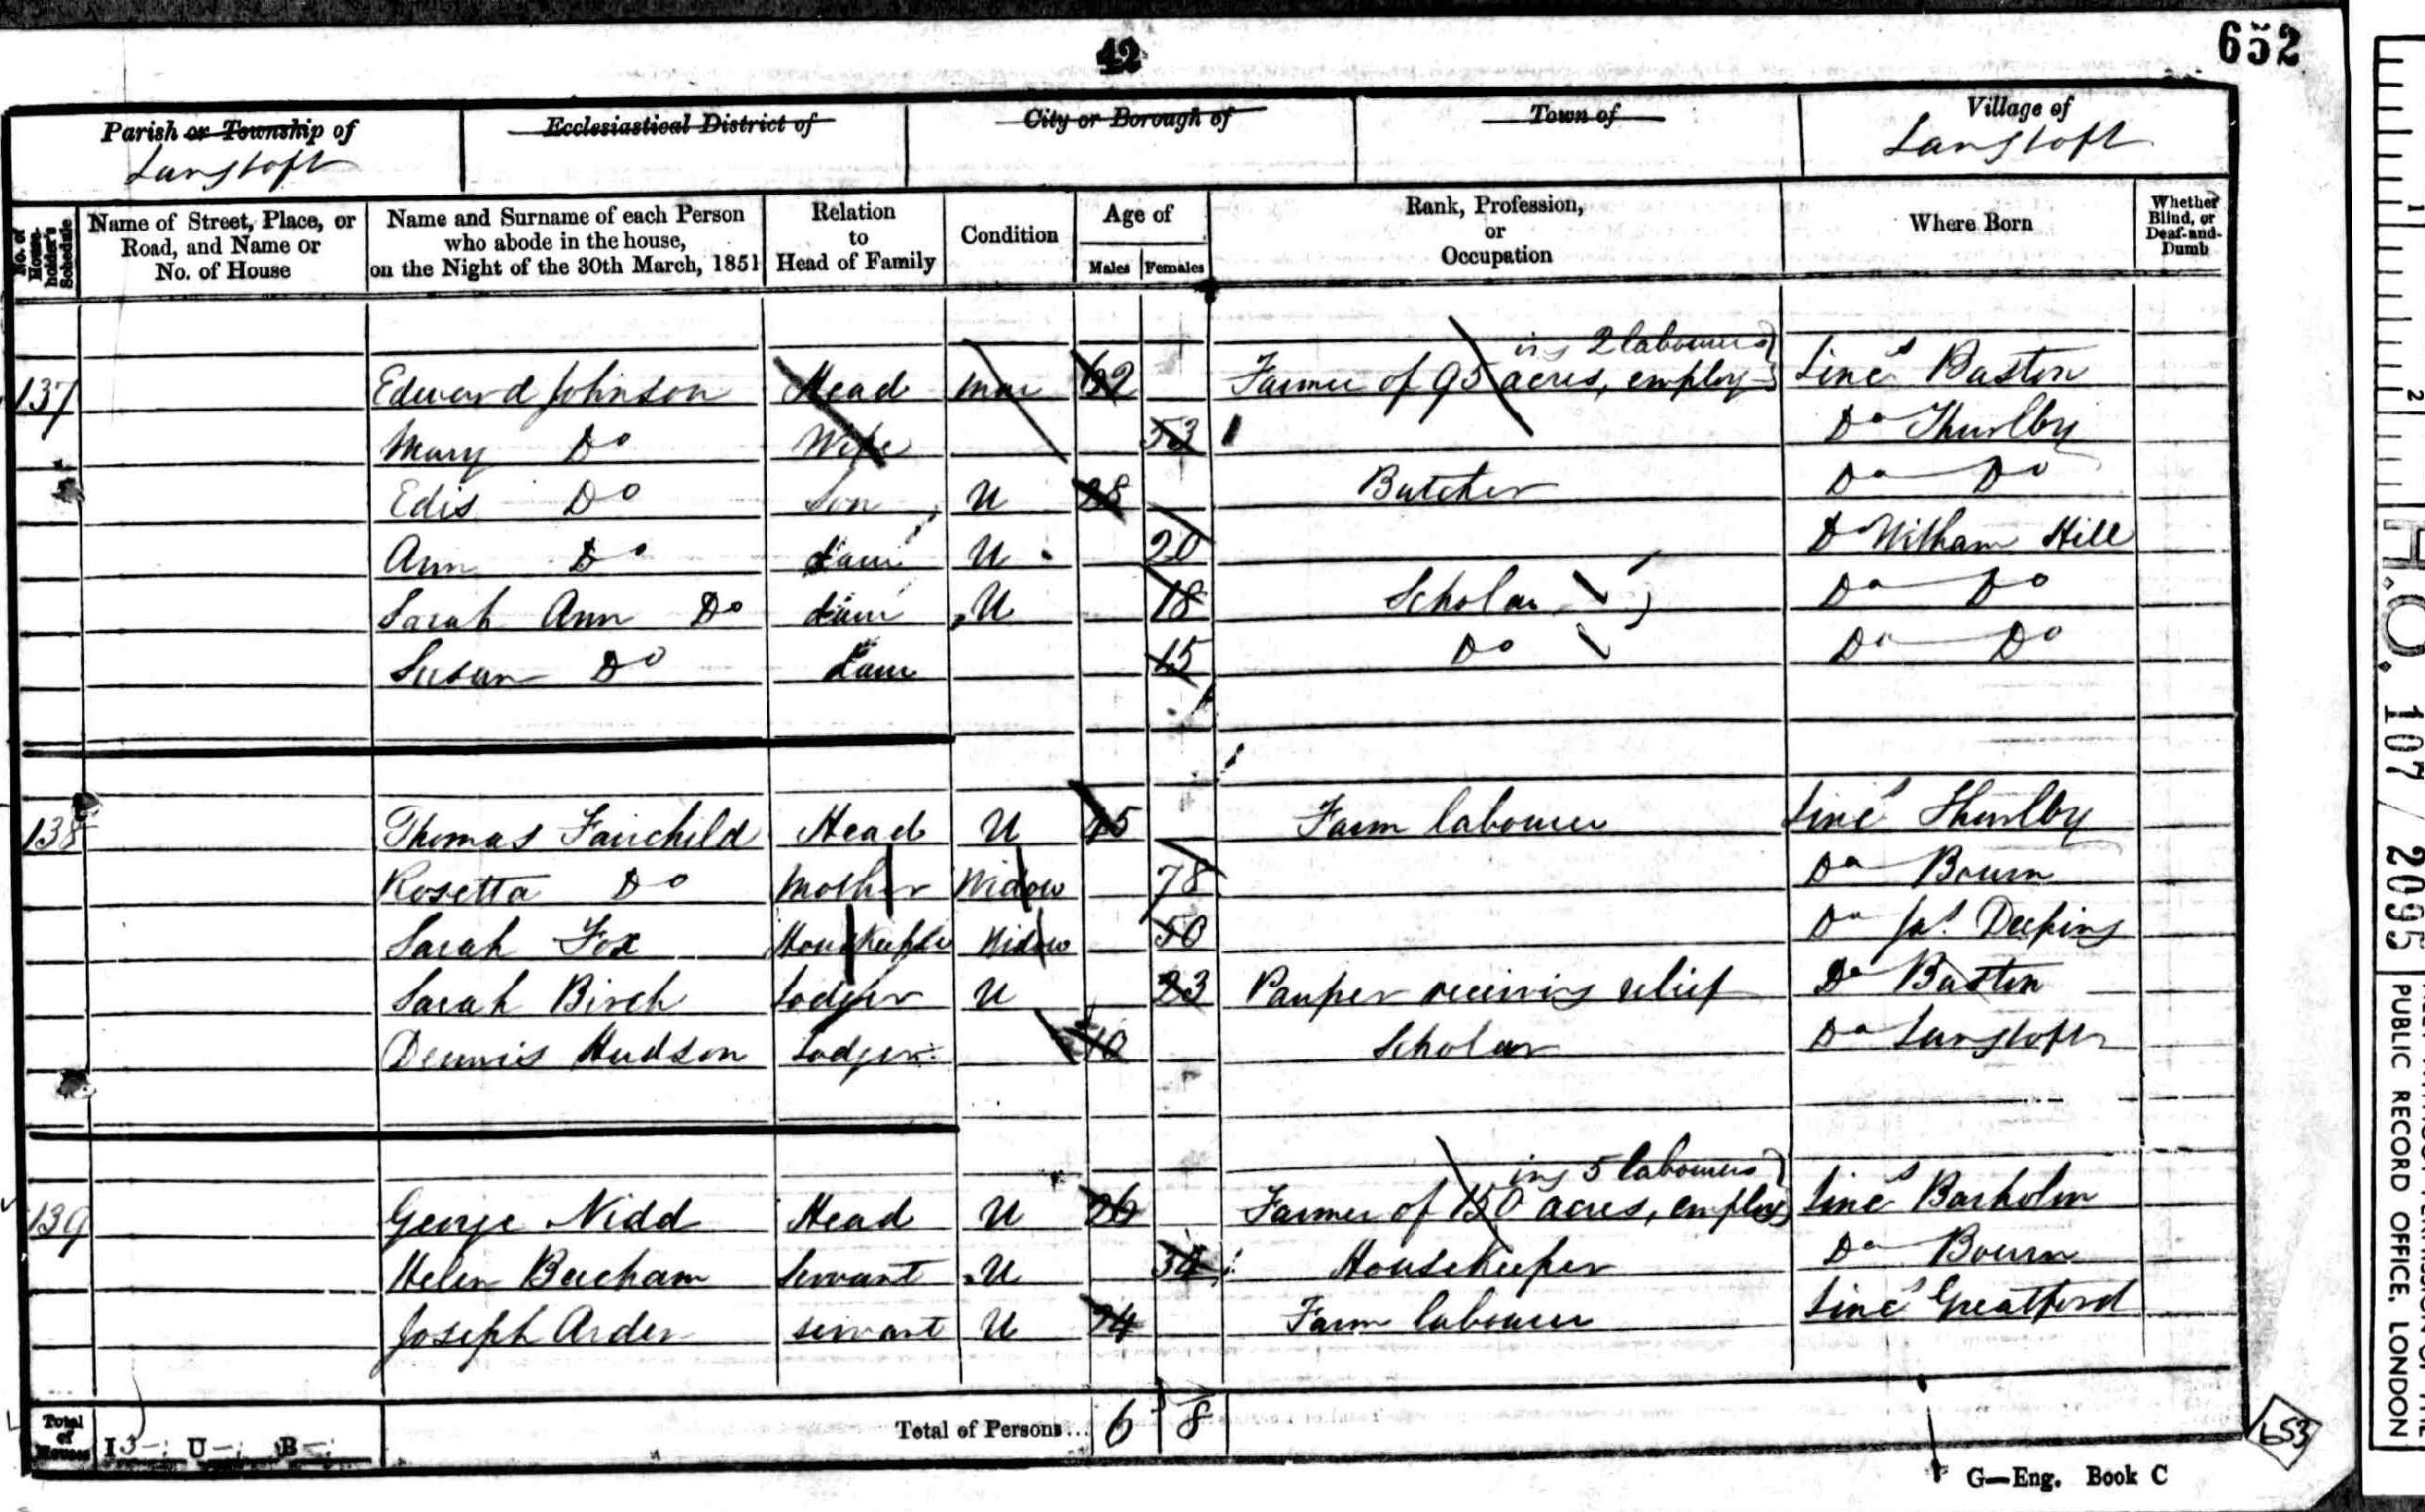 42
652
Parish or Township of
Langtoft
Ecclesiastical District of
City or Borough of
Town of
Village of
Langtoft
No. of House-holder's Schedule
Name of Street, Place, or Road, and Name or No. of House
Name and Surname of each Person who abode in the house, on the Night of the 30th March, 1851
Relation to Head of Family
Condition
Age of
Males Females
Rank, Profession, or Occupation
Where Born
Whether Blind, or Deaf-and-Dumb
137 Edward Johnson Head Mar 62 Farmer of 95 acres, employing 2 labourers Linc^s Baston
Mary Do Wife 53 Do Thurlby
Edis Do Son U 28 Butcher Do Do
Ann Do Daur U 20 Do Witham Hill
Sarah Ann Do Daur U 18 Scholar Do Do
Susan Do Daur 15 Do Do Do
138 Thomas Fairchild Head U 45 Farm labourer Linc^s Thurlby
Rosetta Do Mother Widow 78 Do Bourn
Sarah Fox Housekeeper Widow 50 Do Ja^s. Deeping
Sarah Birch Lodger U 23 Pauper receiving relief Do Baston
Dennis Hudson Lodger 10 Scholar Do Langtoft
139 George Nidd Head U 26 Farmer of 150 acres, employing 5 labourers Linc^s Barholm
Helen Beecham Servant U Housekeeper Do Bourn
Joseph Arden servant U 24 Farm labourer Linc^s Greatford
Total of Houses I 3 U B
Total of Persons... 6 8
G—Eng. Book C
653
H.O. 107/2095
PUBLIC RECORD OFFICE, LONDON
1
2